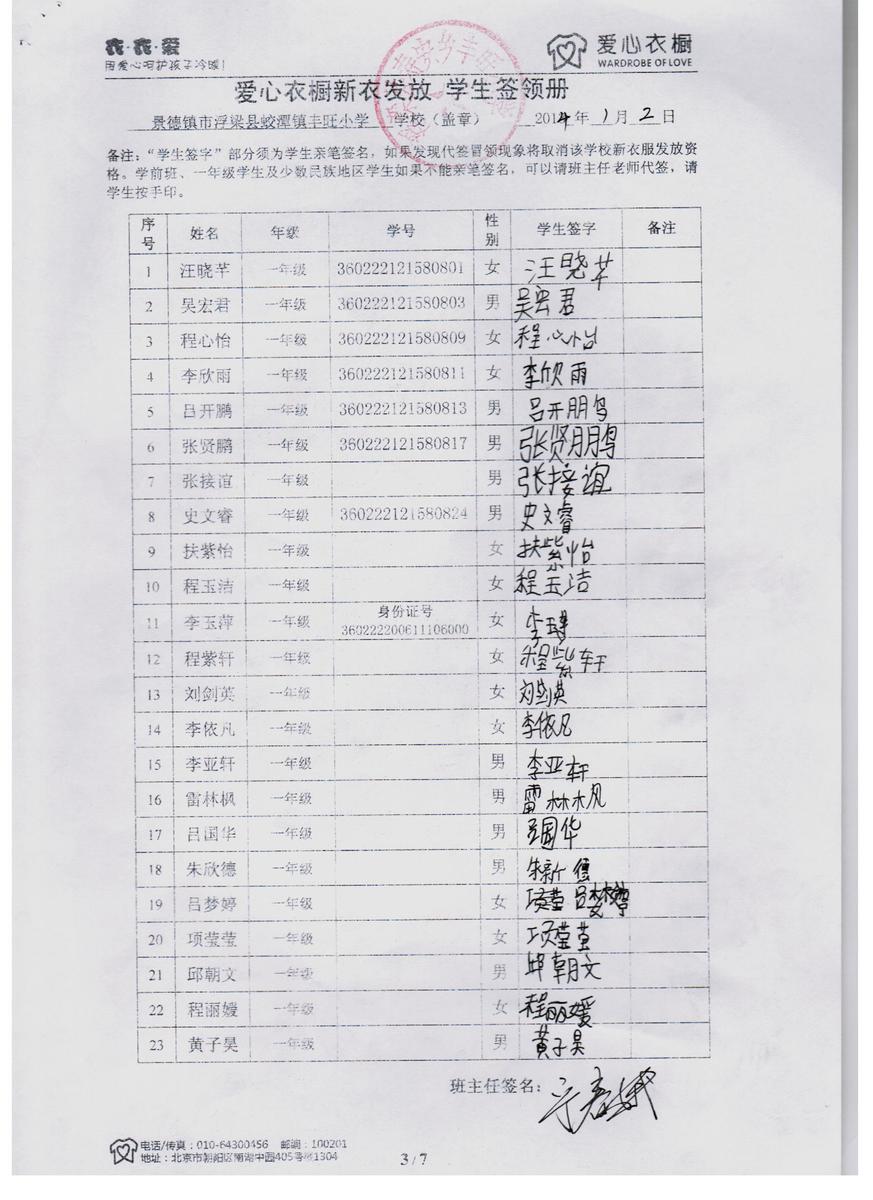 衣·衣·爱
用爱心呵护孩子冷暖!
爱心衣橱
WARDROBE OF LOVE
爱心衣橱新衣发放 学生签领册
景德镇市浮梁县蛟潭镇丰旺小学 学校（盖章） 2014年1月2日
备注：“学生签字”部分须为学生亲笔签名，如果发现代签冒领现象将取消该学校新衣服发放资
格。学前班、一年级学生及少数民族地区学生如果不能亲笔签名，可以请班主任老师代签，请
学生按手印。
序号 姓名 年级 学号 性别 学生签字 备注
1 汪晓芊 一年级 360222121580801 女 汪晓芊
2 吴宏君 一年级 360222121580803 男 吴宏君
3 程心怡 一年级 360222121580809 女 程心怡
4 李欣雨 一年级 360222121580811 女 李欣雨
5 吕开鹏 一年级 360222121580813 男 吕开鹏
6 张贤鹏 一年级 360222121580817 男 张贤鹏
7 张接谊 一年级 男 张接谊
8 史文睿 一年级 360222121580824 男 史文睿
9 扶紫怡 一年级 女 扶紫怡
10 程玉洁 一年级 女 程玉洁
11 李玉萍 一年级 身份证号 360222200611106000 女 李
12 程紫轩 一年级 女 程紫轩
13 刘剑英 一年级 女 刘剑英
14 李依凡 一年级 女 李依凡
15 李亚轩 一年级 男 李亚轩
16 雷林枫 一年级 男 雷林枫
17 吕国华 一年级 男 国华
18 朱欣德 一年级 男 朱新德
19 吕梦婷 一年级 女 项莹 吕梦婷
20 项莹莹 一年级 女 项莹莹
21 邱朝文 一年级 男 邱朝文
22 程丽媛 一年级 女 程丽媛
23 黄子昊 一年级 男 黄子昊
班主任签名：
电话/传真：010-64300456 邮编：100201
地址：北京市朝阳区南湖中园405号楼1304
3/7